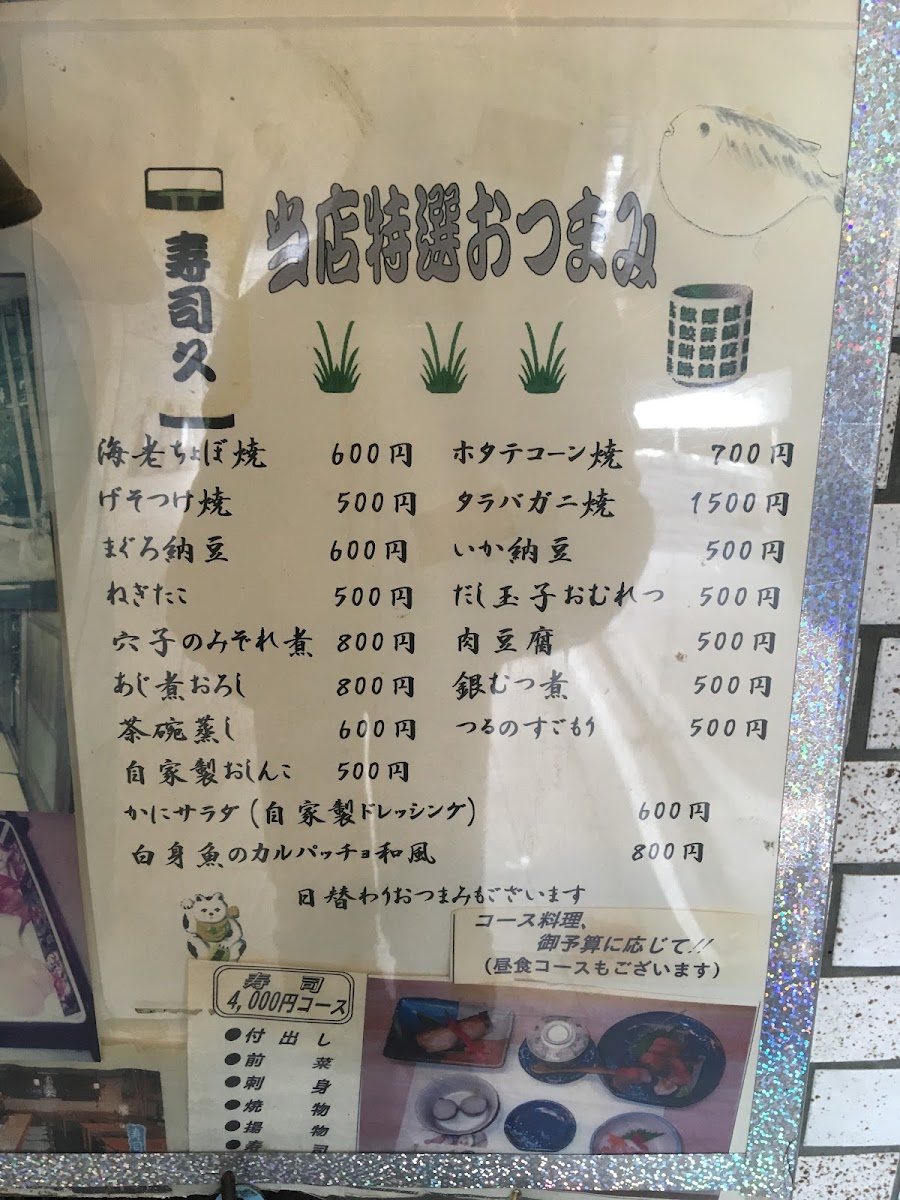 当店特選おつまみ
寿司久
海老ちょぼ焼 600円
げそつけ焼 500円
まぐろ納豆 600円
ねぎたこ 500円
穴子のみぞれ煮 800円
あじ煮おろし 800円
茶碗蒸し 600円
自家製おしんこ 500円
ホタテコーン焼 700円
タラバガニ焼 1500円
いか納豆 500円
だし玉子おむれつ 500円
肉豆腐 500円
銀むつ煮 500円
つるのすごもり 500円
かにサラダ(自家製ドレッシング) 600円
白身魚のカルパッチョ和風 800円
日替わりおつまみもございます
コース料理、
御予算に応じて!!
(昼食コースもございます)
寿司
4,000円コース
●付出し
●前菜
●刺身
●焼物
●揚物
●寿司